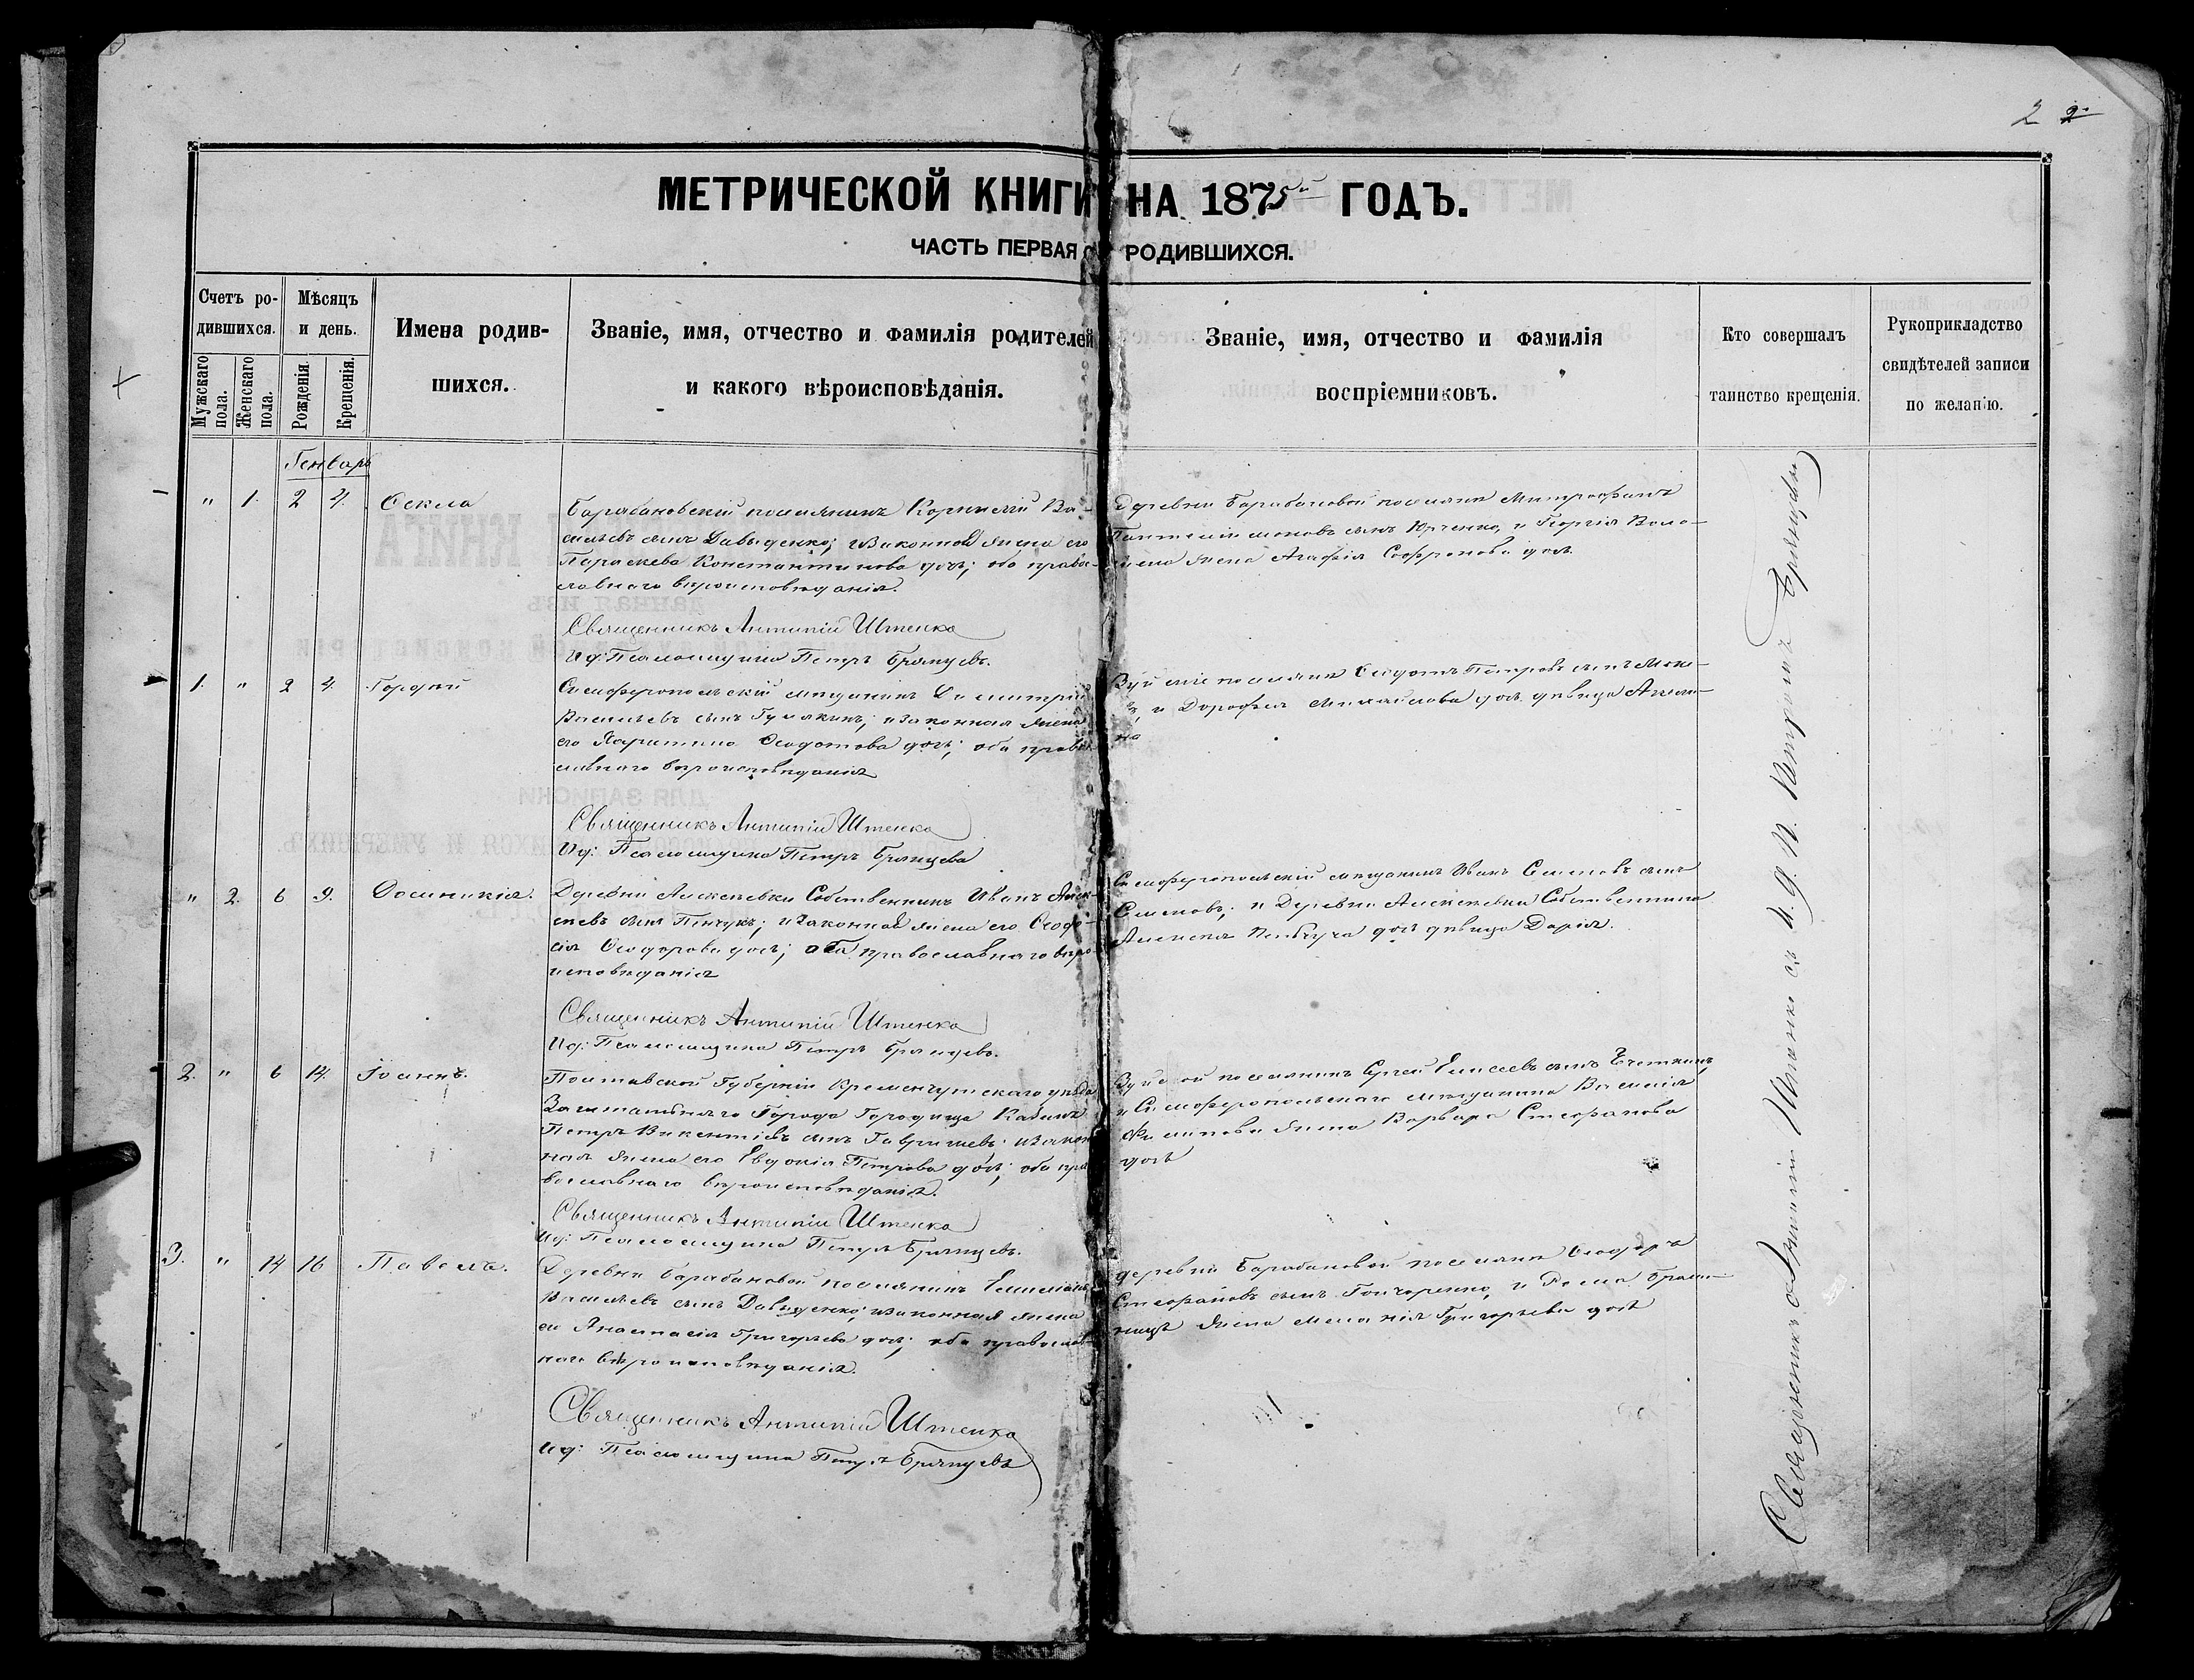 2 2
МЕТРИЧЕСКОЙ КНИГИ НА 1875й ГОДЪ.
ЧАСТЬ ПЕРВАЯ О РОДИВШИХСЯ.
Счетъ ро-
дившихся.
Мужскаго пола.
Женскаго пола.
Мѣсяцъ
и день.
Рожденія.
Крещенія.
Имена родив-
шихся.
Званіе, имя, отчество и фамилія родителей
и какого вѣроисповѣданія.
Званіе, имя, отчество и фамилія
воспріемниковъ.
Кто совершалъ
таинство крещенія.
Рукоприкладство
свидѣтелей записи
по желанію.
Генварь
" 1. 2 4. Ѳекла
Барабановскій поселянинъ Корнилій Ва-
сильевъ сынъ Давыденко; и законная жена его
Параскева Константинова дочь; оба право-
славнаго вѣроисповѣданія.
Священникъ Антипій Штенко
Ид: Псаломщика Петръ Брянцевъ.
Деревни Барабановой поселянинъ Митрофанъ
Пантелиимоновъ сынъ Юрченко, и Георгія
жена Агафія Софронова дочь
1. " 2 4. Гордій
Симферопольскій мѣщанинъ Димитрій
Васильевъ сынъ; и законная жена
его Харитина Ѳеодотова дочь; оба право-
славнаго вѣроисповѣданія
Священникъ Антипій Штенко
Ид: Псаломщика Петръ Брянцевъ
Ѳеодотъ Петровъ сынъ
и Дорофея Михайлова дочь дѣвица
" 2. 6 9. Домникія.
Деревни Алексѣевки Собственникъ Иванъ Алек-
сѣевъ сынъ Пинчукъ; и законная жена его Ѳеодо-
сія Ѳеодорова дочь; оба православнаго вѣро-
исповѣданія
Священникъ Антипій Штенко
Ид: Псаломщика Петръ Брянцевъ.
Симферопольскій мѣщанинъ Иванъ Семеновъ сынъ
Семеновъ; и Деревни Алексѣевки Собственника
Алексѣя дочь дѣвица Дарія.
2. " 6 14. Іоаннъ.
Полтавской Губерніи Кременчугскаго уѣзда
Заштатнаго Города Городища Казакъ
Петръ Викентіевъ сынъ; и закон-
ная жена его Евдокія Петрова дочь; оба пра-
вославнаго вѣроисповѣданія.
Священникъ Антипій Штенко
Ид: Псаломщика Петръ Брянцевъ.
Зуйской поселянинъ Сергѣй Елисеевъ сынъ
и Симферопольскаго мѣщанина Василія
Филипова жена Варвара Стефанова
дочь
3. " 14 16 Павелъ.
Деревни Барабановой поселянинъ Емиліанъ
Васильевъ сынъ Давиденко; и законная жена
его Анастасія Григорьева дочь; оба православ-
наго вѣроисповѣданія.
Священникъ Антипій Штенко
Ид: Псаломщика Петръ Брянцевъ
Деревни Барабановой поселянинъ Ѳеодоръ
Стефановъ сынъ Гончаренко, и
жена Меланія Григорьева дочь
Священникъ Антипій Штенко съ И. д. П. Петромъ Брянцевымъ